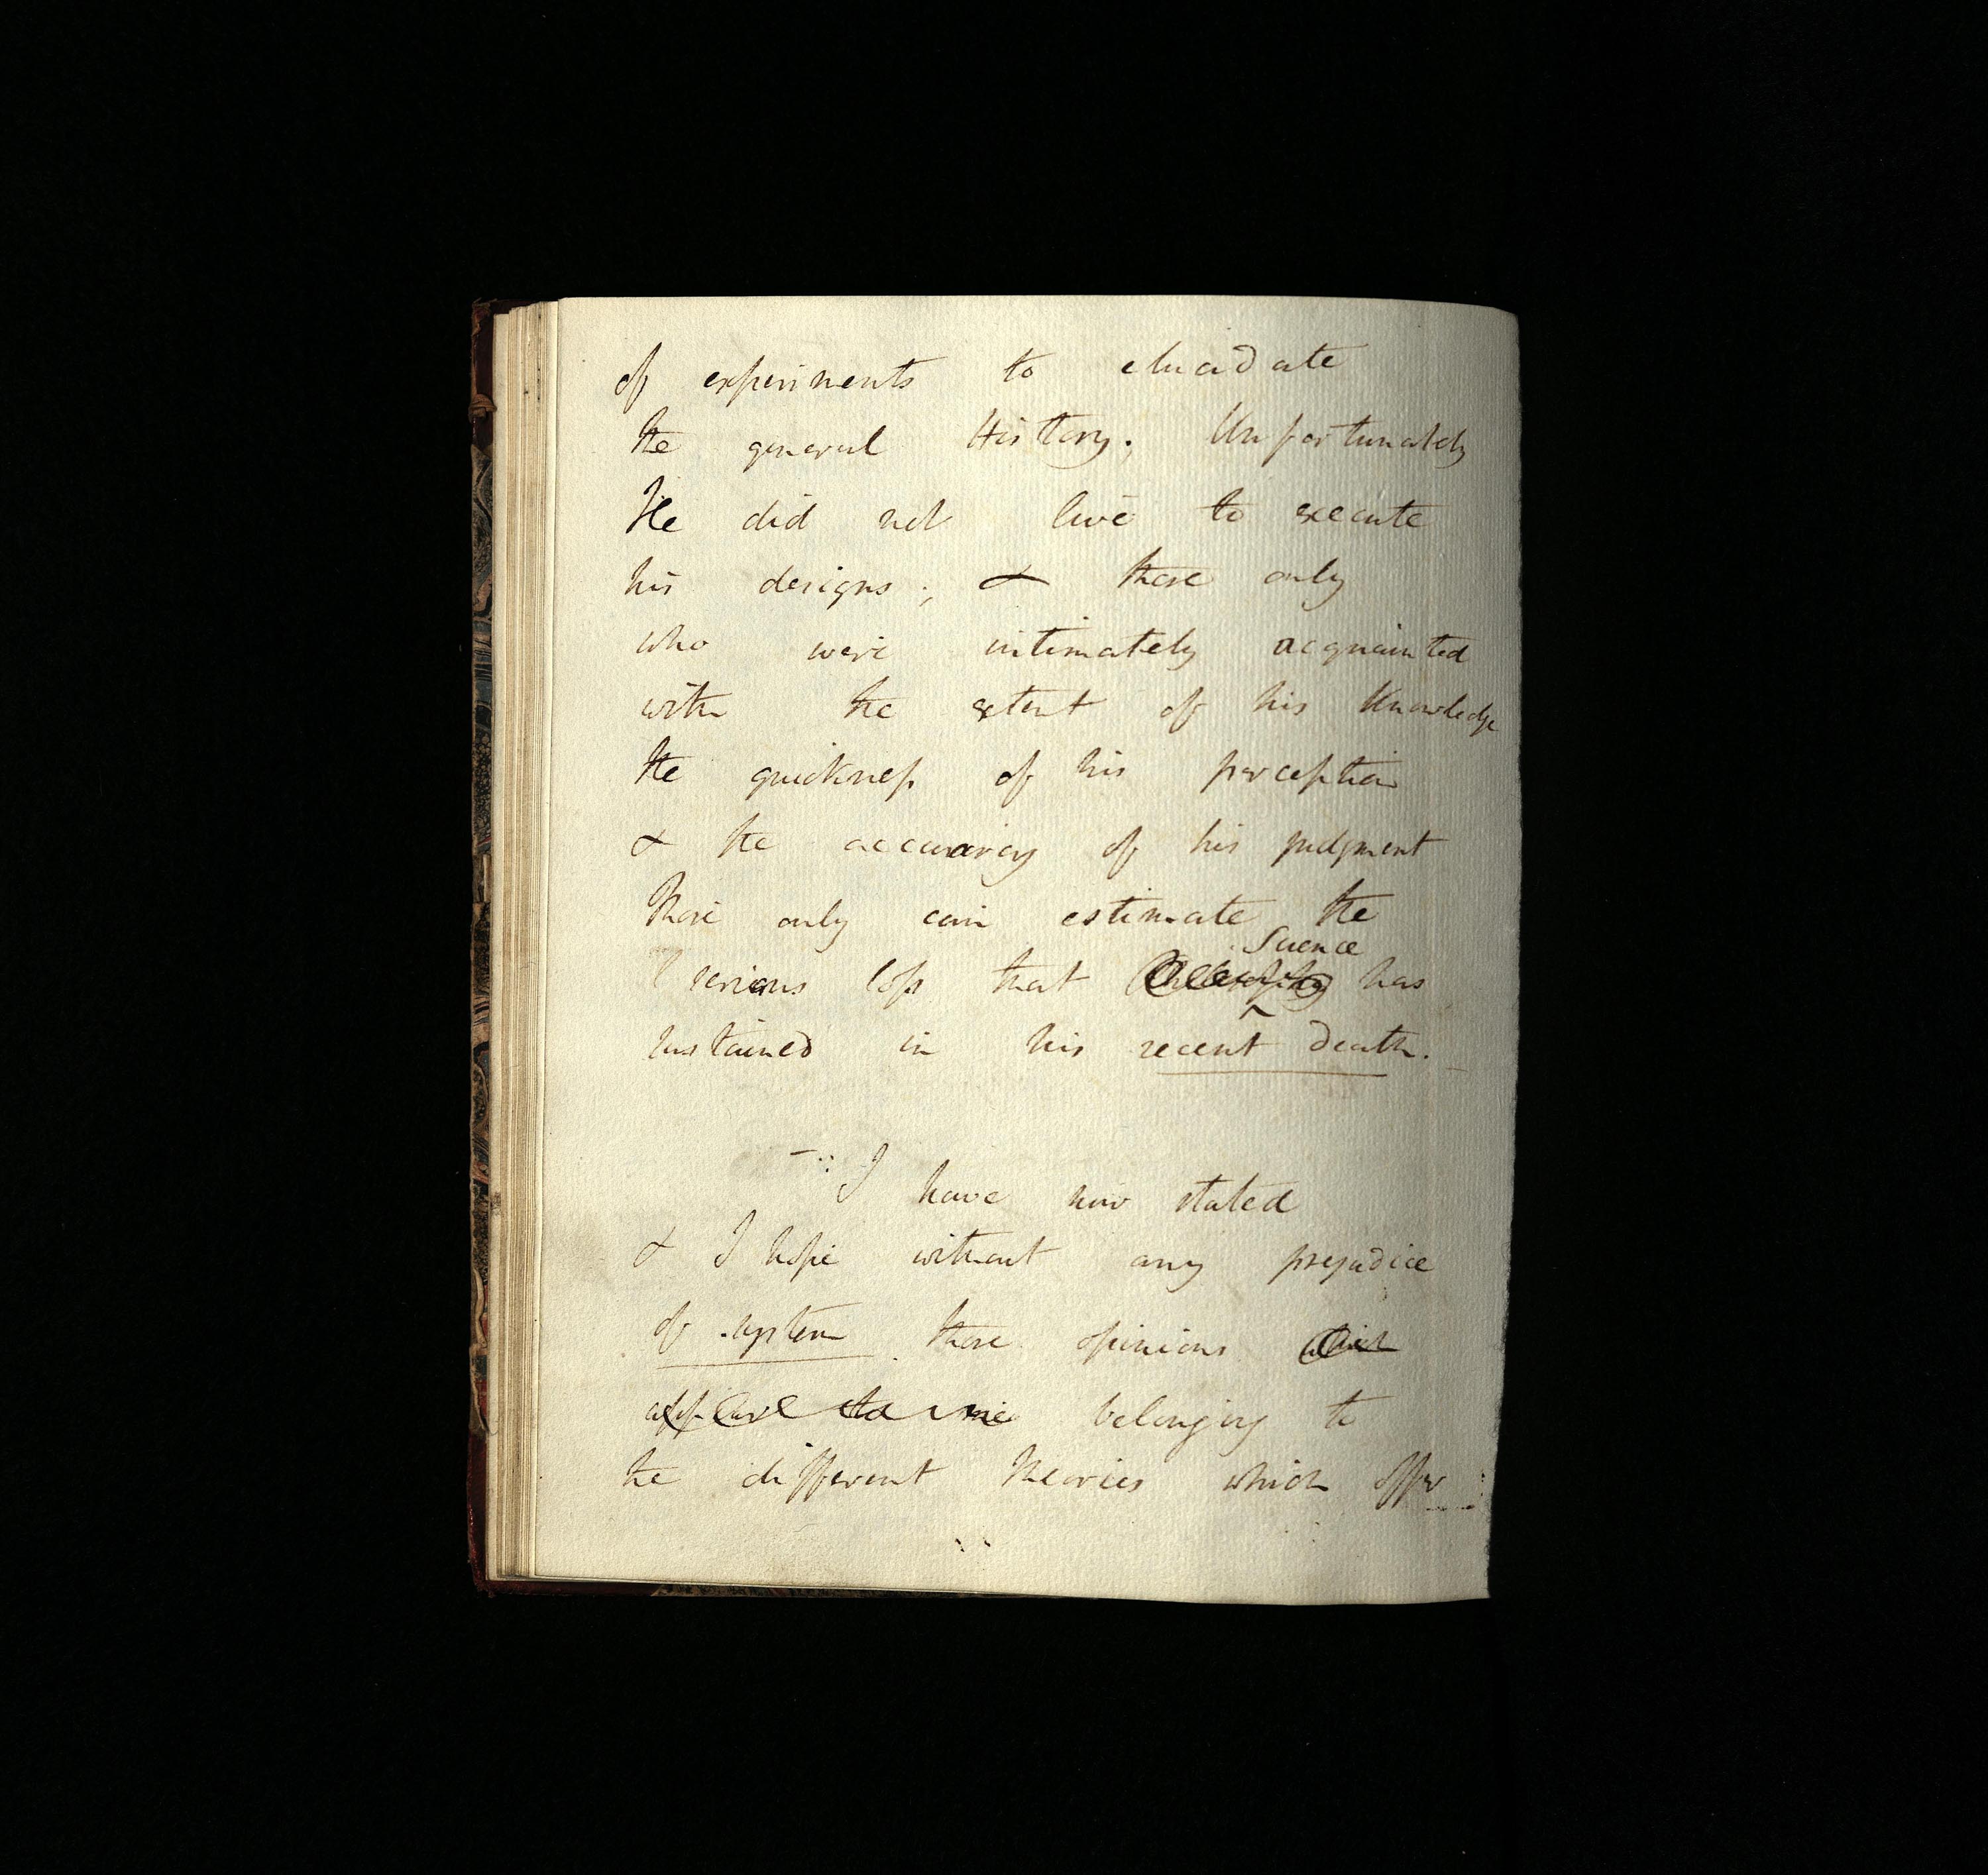 of experiments to elucidate
the general History; Unfortunately
He did not live to execute
his designs; & those only
who were intimately acquainted
with the extent of his Knowledge
the quickness of his perception
& the accuracy of his judgment
those only can estimate the
Science
serious loss that Philosophy has
sustained in his recent death.
I have now stated
& I hope without any prejudice
of system those opinions which
appear to me belonging to
the different theories which offer